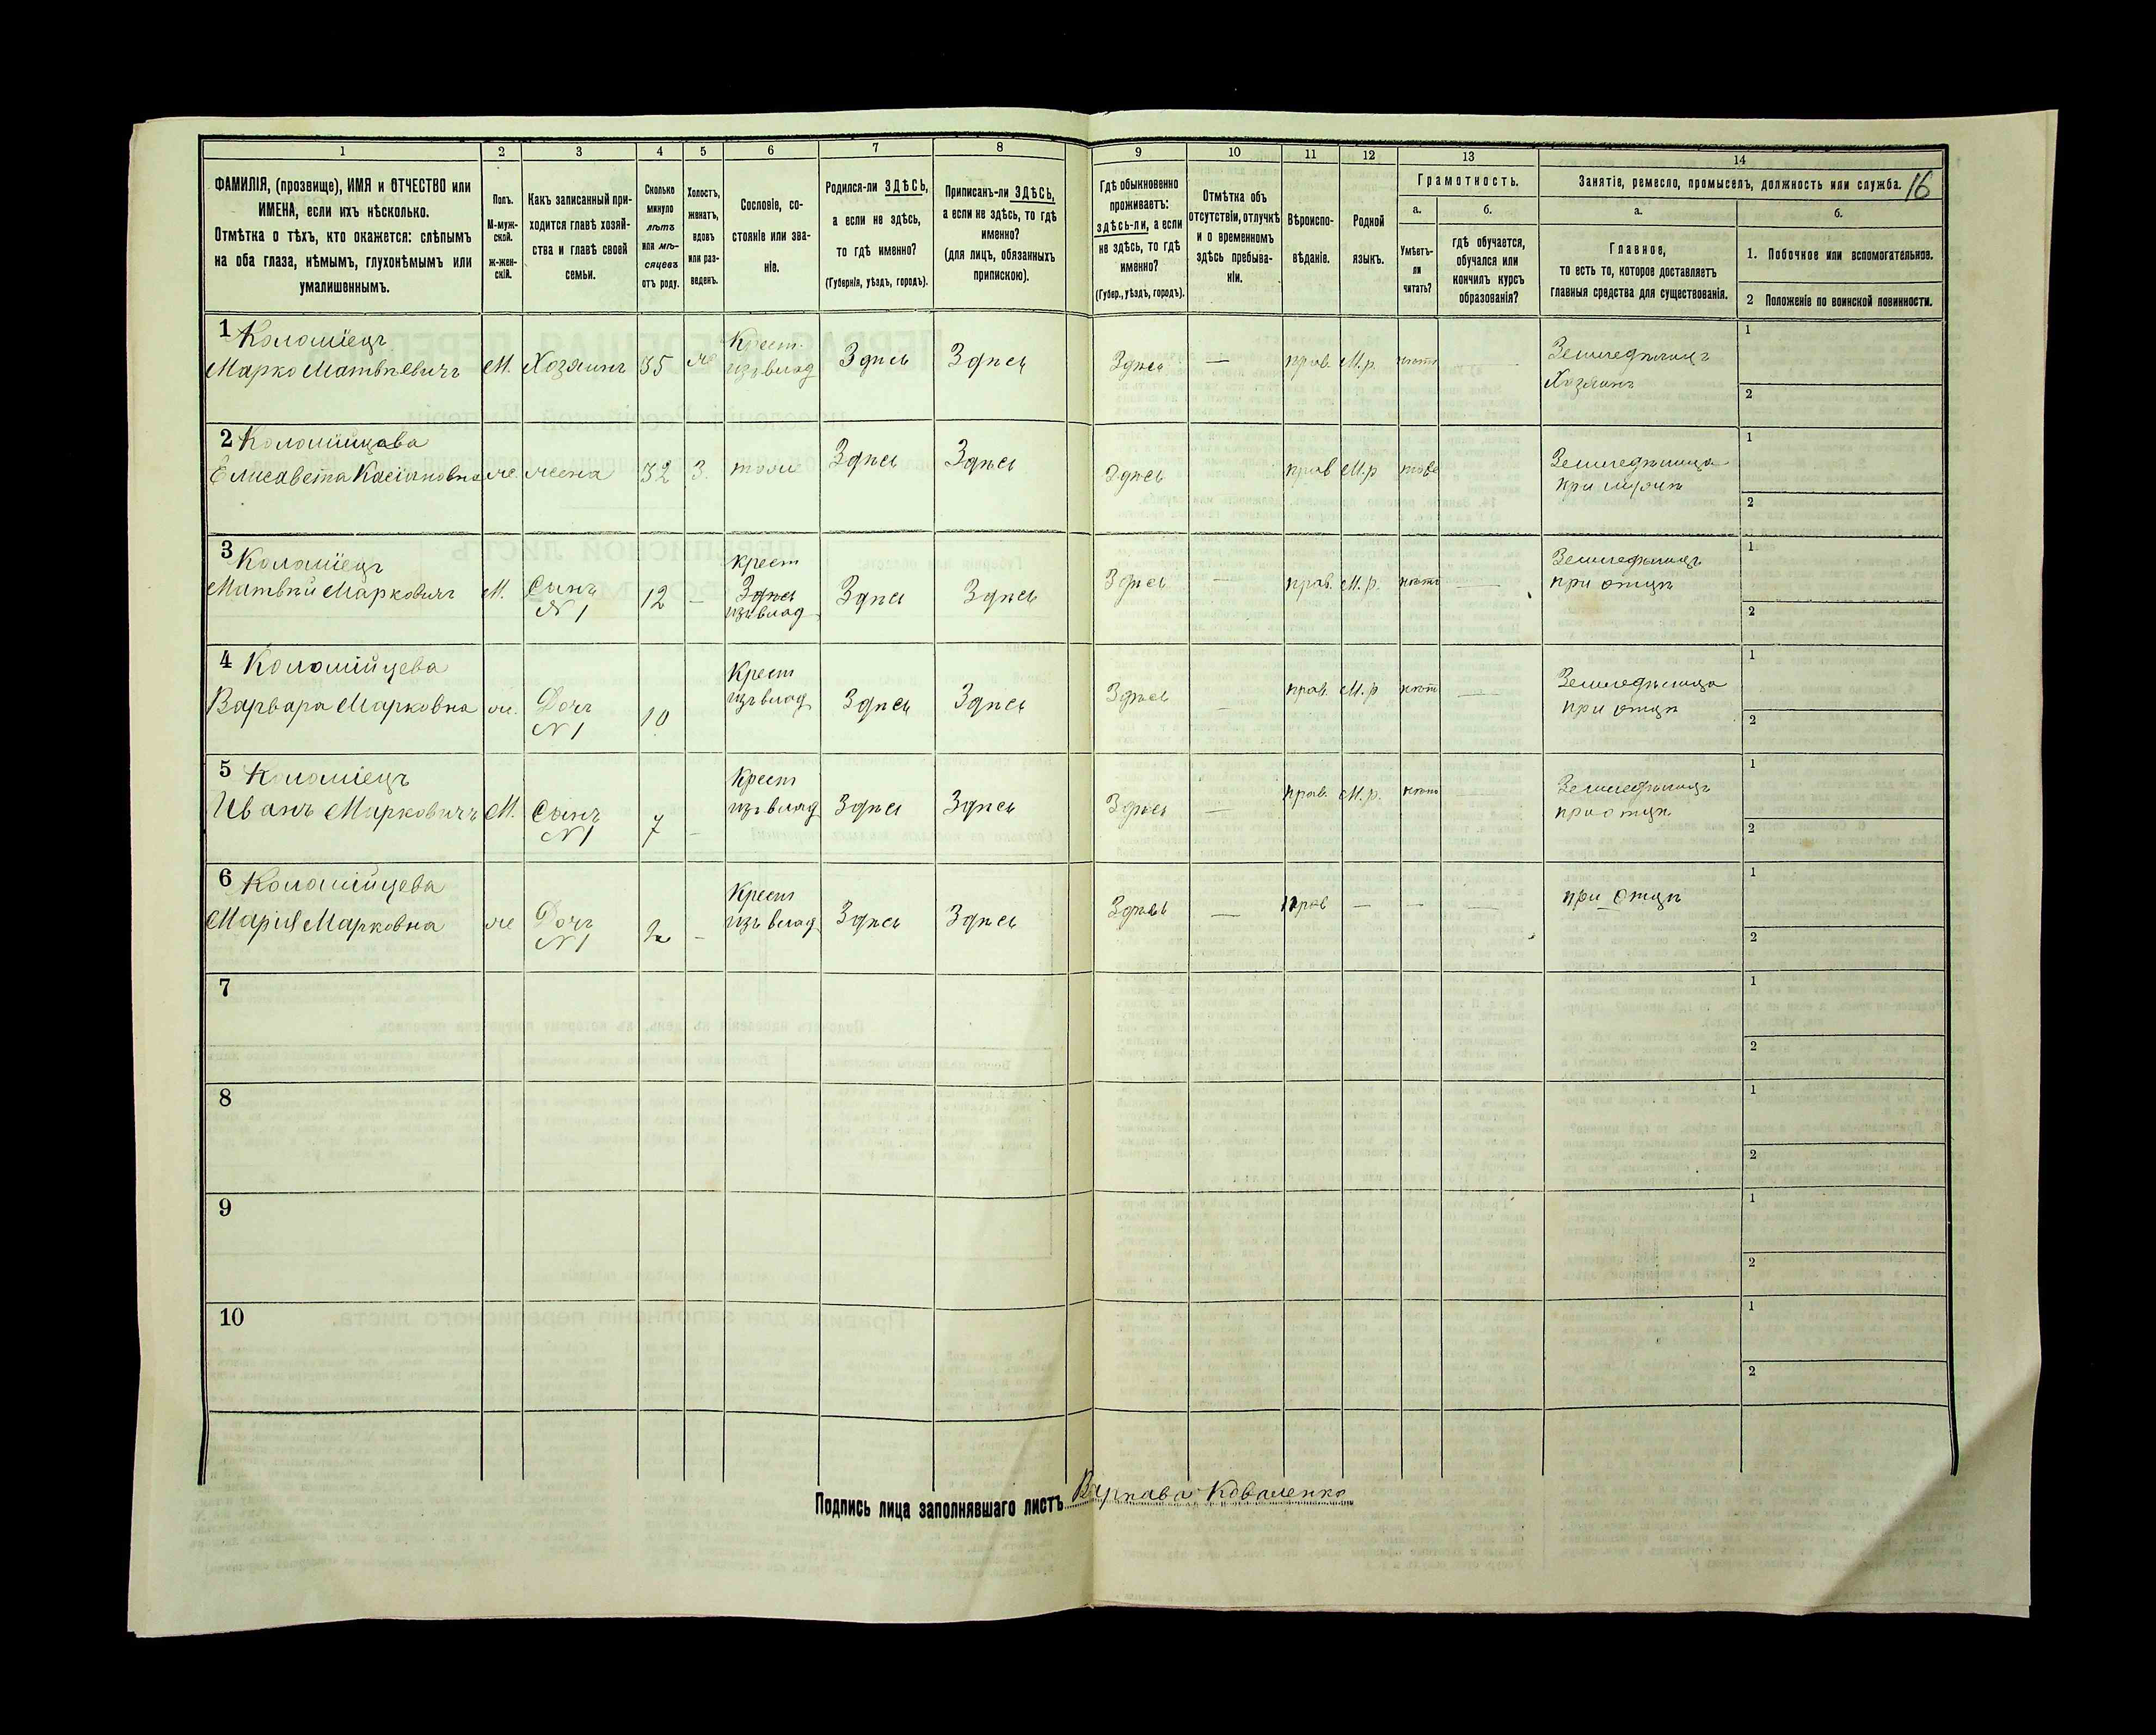 1 2 3 4 5 6 7 8 9 10 11 12 13 14
16
ФАМИЛІЯ, (прозвище), ИМЯ и ОТЧЕСТВО или
ИМЕНА, если ихъ нѣсколько.
Отмѣтка о тѣхъ, кто окажется: слѣпымъ
на оба глаза, нѣмымъ, глухонѣмымъ или
умалишеннымъ.
Полъ.
М-муж-
ской.
ж-жен-
скій.
Какъ записанный при-
ходится главѣ хозяй-
ства и главѣ своей
семьи.
Сколько
минуло
лѣтъ
или мѣ-
сяцевъ
отъ роду.
Холостъ,
женатъ,
вдовъ
или раз-
веденъ.
Сословіе, со-
стояніе или зва-
ніе.
Родился-ли ЗДѢСЬ,
а если не здѣсь,
то гдѣ именно?
(Губернія, уѣздъ, городъ).
Приписанъ-ли ЗДѢСЬ,
а если не здѣсь, то гдѣ
именно?
(для лицъ, обязанныхъ
припискою).
Гдѣ обыкновенно
проживаетъ:
здѣсь-ли, а если
не здѣсь, то гдѣ
именно?
(Губер., уѣздъ, городъ).
Отмѣтка объ
отсутствіи, отлучкѣ
и о временномъ
здѣсь пребыва-
ніи.
Вѣроиспо-
вѣданіе.
Родной
языкъ.
Грамотность.
а.
Умѣетъ-
ли
читать?
б.
гдѣ обучается,
обучался или
кончилъ курсъ
образованія?
Занятіе, ремесло, промыселъ, должность или служба.
а.
Главное,
то есть то, которое доставляетъ
главныя средства для существованія.
б.
1. Побочное или вспомогательное.
2 Положеніе по воинской повинности.
1 Коломіецъ Крест. 1
Марко Матвѣевичъ М. Хозяинъ 35 ж изъ влад Здѣсь Здѣсь Здѣсь — прав. М.р. нѣтъ — Земледѣлецъ
Хозяинъ 2
2 Коломійцева 1
Елисавета Касіяновна ж. жена 32 З. тоже Здѣсь Здѣсь Здѣсь прав М.р тоже Земледѣлица
при мужѣ 2
3 Коломіецъ крест 1
Матвѣй Марковичъ М. Сынъ 12 — Здѣсь Здѣсь Здѣсь Здѣсь — прав. М.р. нѣтъ — Земледѣлецъ
N 1 изъ влад при отцѣ 2
4 Коломійцева Крест 1
Варвара Марковна ж. Дочь 10 изъ влад Здѣсь Здѣсь Здѣсь — прав. М.р нѣтъ — Земледѣлица
N 1 при отцѣ 2
5 Коломіецъ Крест 1
Иванъ Марковичъ М. Сынъ 7 — изъ влад Здѣсь Здѣсь Здѣсь — прав. М.р. нѣтъ — Земледѣлецъ
N 1 при отцѣ 2
6 Коломійцева Крест 1
Марія Марковна ж Дочь 2 — изъ влад Здѣсь Здѣсь Здѣсь — прав — — — при отцѣ
N 1 2
7 1
2
8 1
2
9 1
2
10 1
2
Подпись лица заполнявшаго листъ Варнава Коваленко